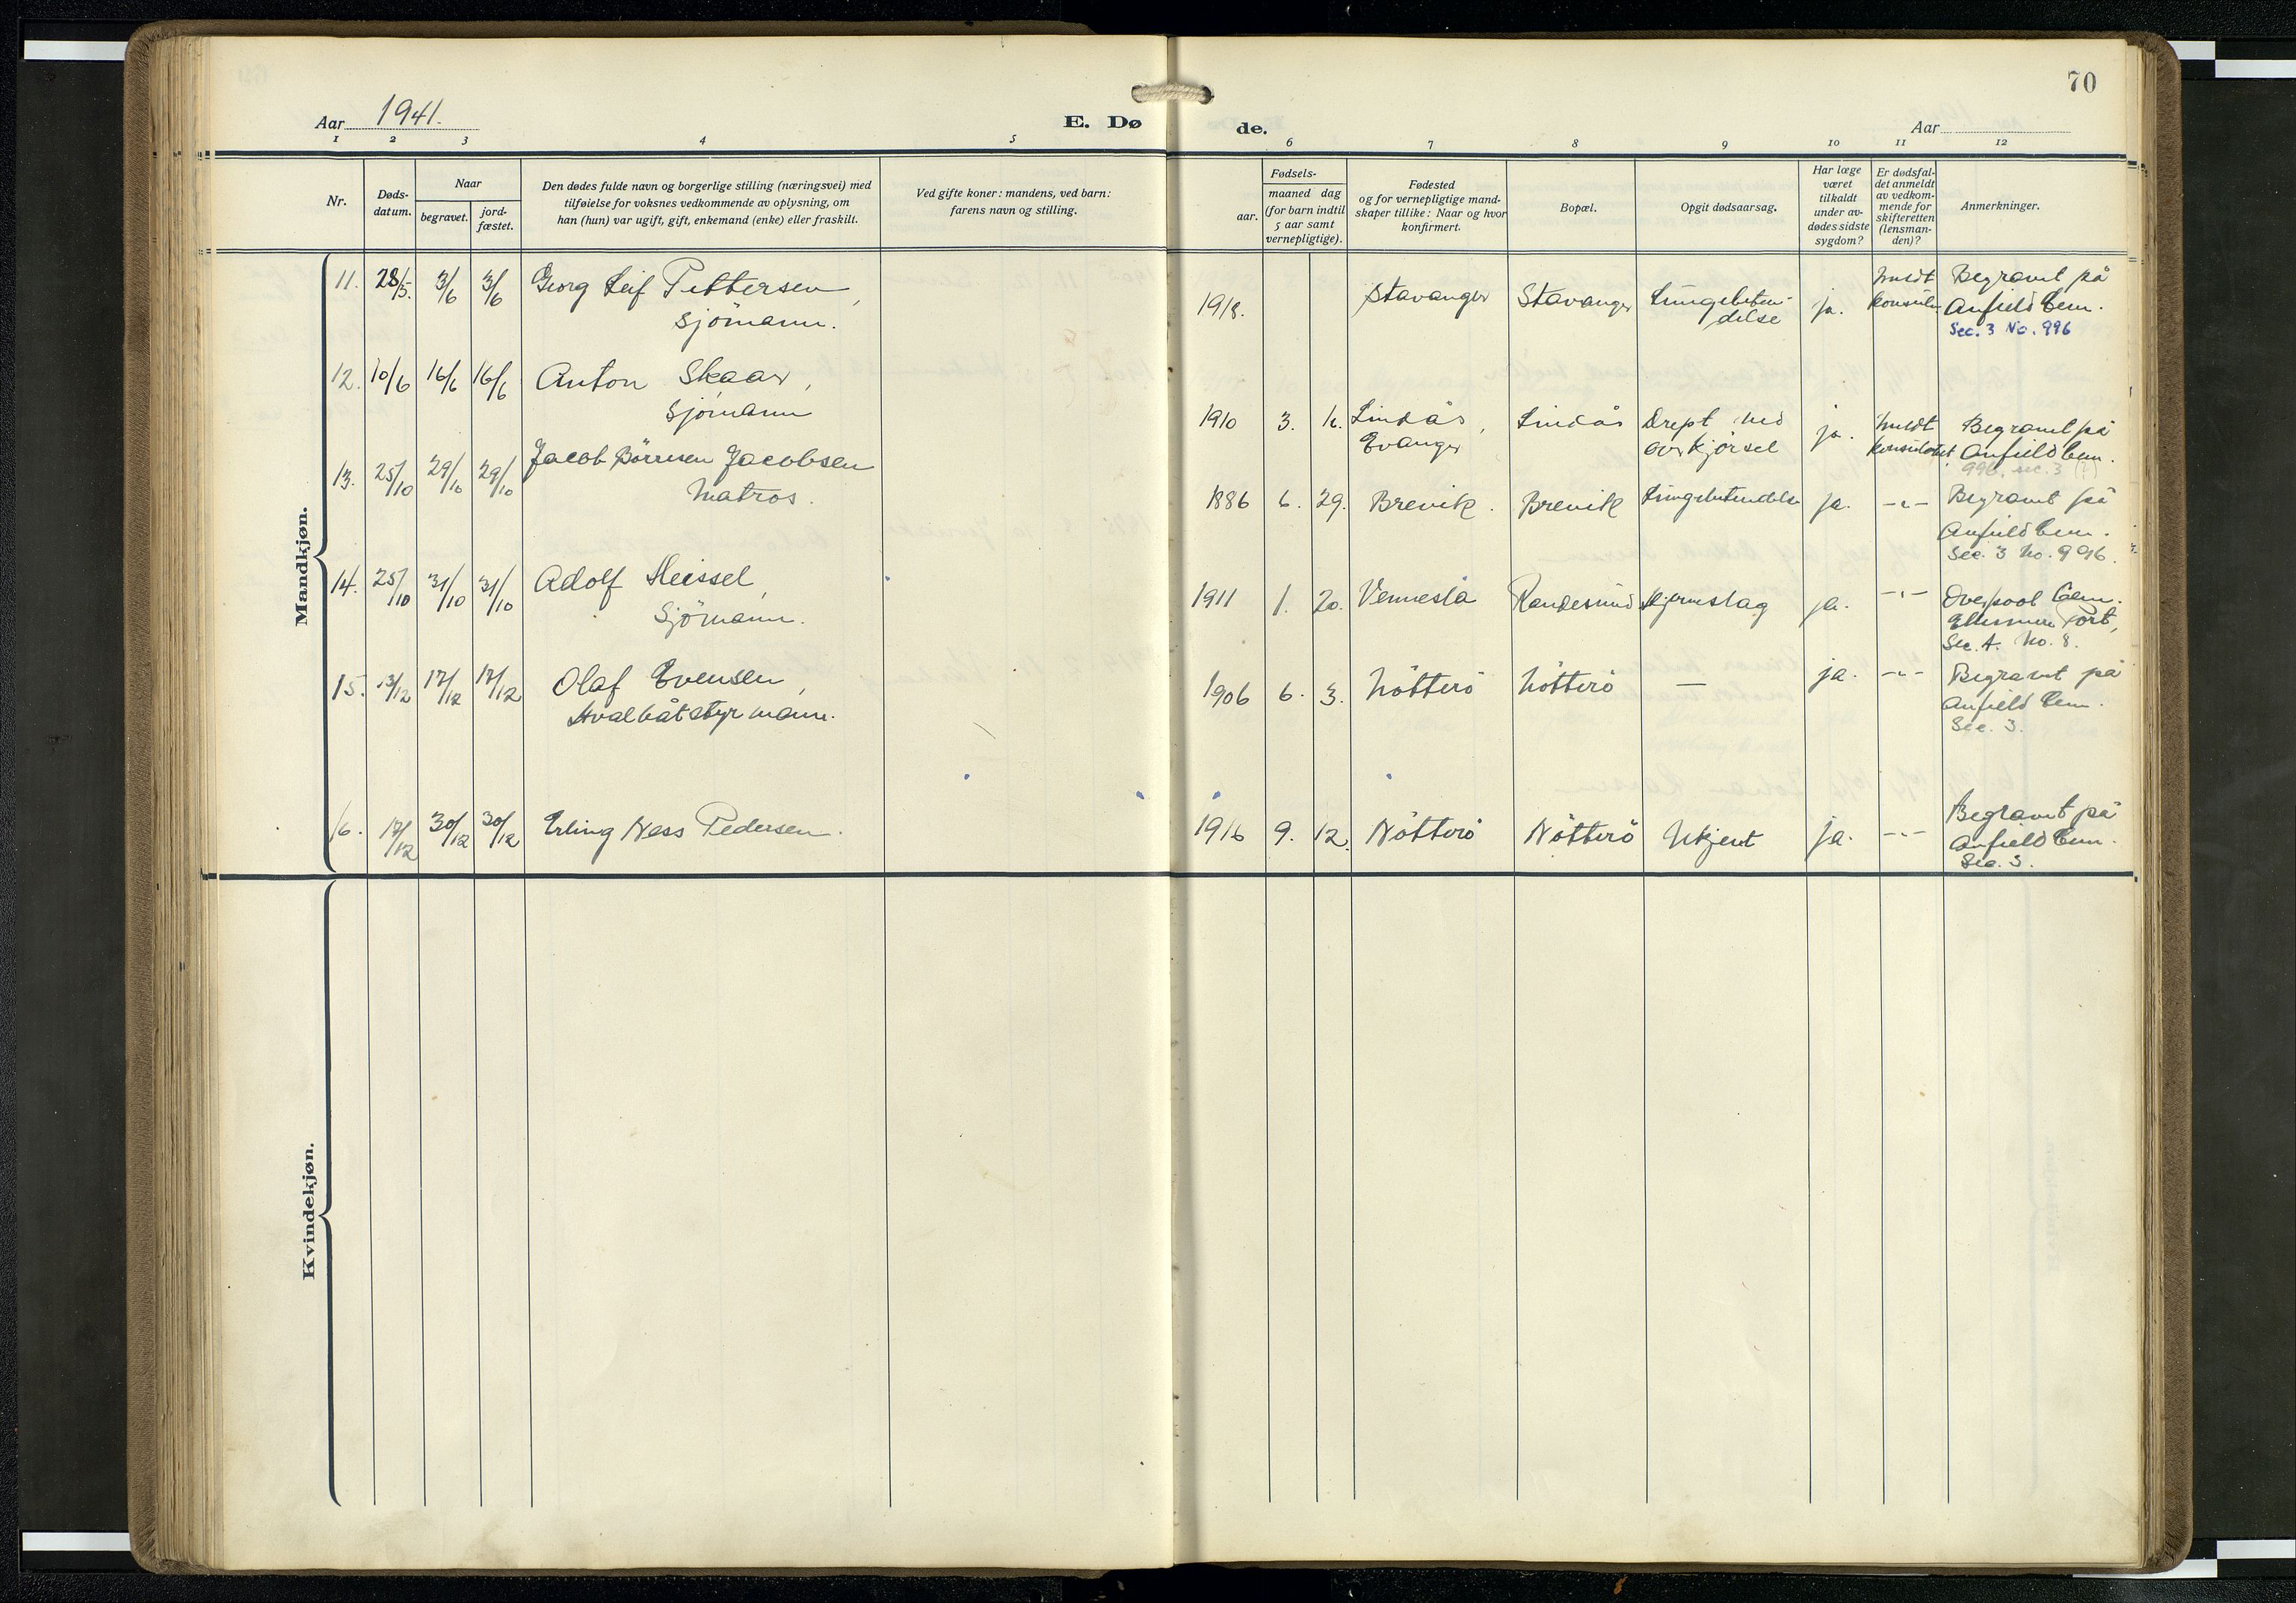 70
Aar 1941.
E. Dø
de.
Aar
1 2 3 4 5 6 7 8 9 10 11 12
Nr.
Døds-
datum.
Naar
begravet.
jord-
fæstet.
Den dødes fulde navn og borgerlige stilling (næringsvei) med
tilføielse for voksnes vedkommende av oplysning, om
han (hun) var ugift, gift, enkemand (enke) eller fraskilt.
Ved gifte koner: mandens, ved barn:
farens navn og stilling.
Fødsels-
aar.
maaned dag
(for barn indtil
5 aar samt
vernepligtige).
Fødested
og for vernepligtige mand-
skaper tillike: Naar og hvor
konfirmert.
Bopæl.
Opgit dødsaarsag.
Har læge
været
tilkaldt
under av-
dødes sidste
sygdom?
Er dødsfal-
det anmeldt
av vedkom-
mende for
skifteretten
(lensman-
den)?
Anmerkninger.
Mandkjøn.
11. 28/5. 3/6 3/6 Georg Leif Pettersen,
Sjömann.
1918. Stavanger Stavanger Lungebeten-
delse
ja.
meldt
Begravet på
Anfield Cem.
Sec. 3 No. 996
12. 10/6 16/6 16/6 Anton Skaar,
Sjömann
1910 3. 16. Lindås,
Evanger
Lindås
Drept ved
overkjörsel
ja.
meldt
konsulatet.
Begravet på
Anfield Cem.
996. sec. 3 (?)
13. 25/10 29/10 29/10 Jacob Börresen Jacobsen
Matros.
1886 6. 29. Brevik. Brevik Lungebetendelse ja. -"-
Begravet på
Anfield Cem.
Sec. 3 No. 996.
14. 25/10 31/10 31/10 Adolf Heissel,
Sjömann.
1911 1. 20. Vennesla Randesund Hjerneslag ja. -"-
Overpool Cem.
Ellesmere Port,
Sec. A. No. 8.
15. 13/12 17/12 17/12 Olaf Evensen,
Hvalbåtstyrmann.
1906 6. 3. Nötterö Nötterö — ja. -"-
Begravet på
Anfield Cem.
Sec. 3.
16. 17/12 30/12 30/12 Erling Ness Pedersen.
1916 9. 12. Nötterö Nötterö Ukjent ja. -"-
Begravet på
Anfield Cem.
Sec. 3.
Kvindekjøn.